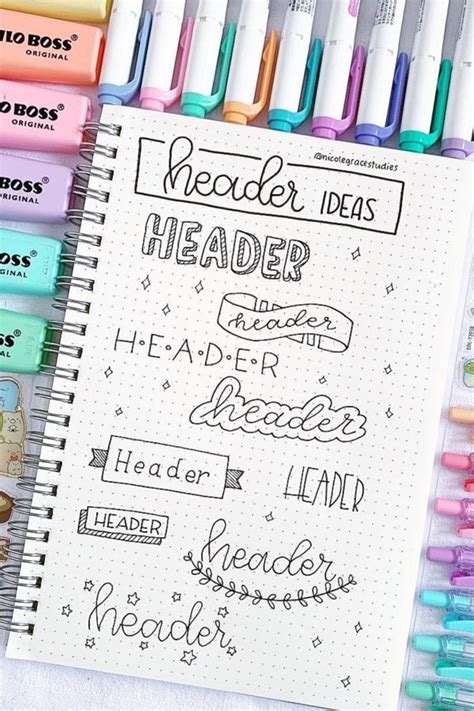 LO BOSS
ORIGINAL
BOSS
ORIGINAL
OSS
GINAL
OSS
INAL
SS
@nicolegracestudies
header IDEAS
HEADER
header
H•E•A•D•E•R
header
Header
HEADER
HEADER
header
header